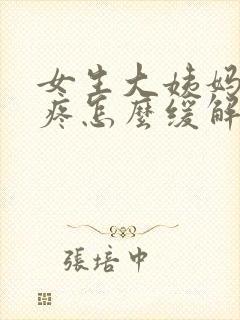 女生大姨妈
疼怎麽缓解
張培中